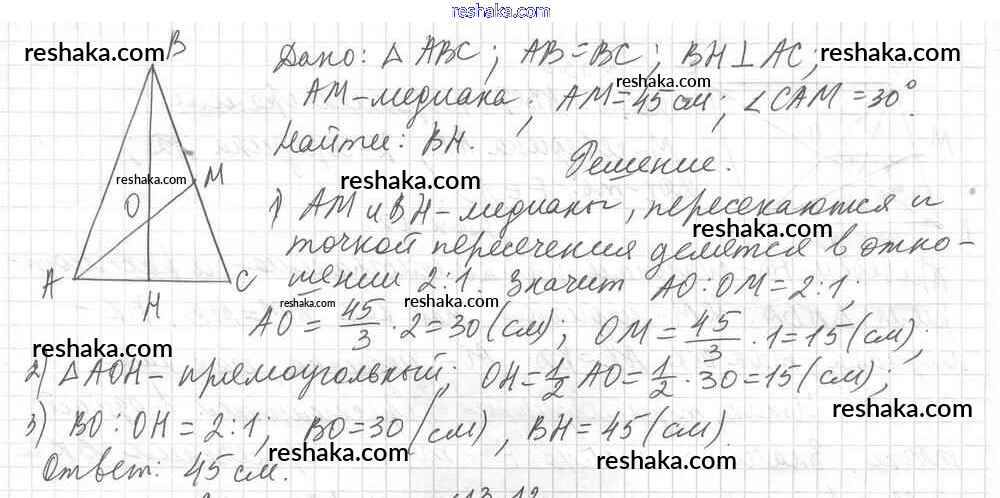 reshaka.com
reshaka.com
B
Дано: △ ABC; AB=BC; BH⊥AC;
reshaka.com
reshaka.com
AM-медиана; AM=45см; ∠CAM=30°
Найти: BH.
Решение.
reshaka.com
M
reshaka.com
O
1) AM и BH-медианы, пересекаются и
reshaka.com
точкой пересечения делятся в отно-
A
C
H
шении 2:1. Значит AO:OM=2:1;
reshaka.com
reshaka.com
AO = 45/3 · 2=30(см); OM = 45/3 · 1=15(см);
reshaka.com
2) △AOH-прямоугольный; OH=1/2 AO=1/2·30=15(см);
reshaka.com
3) BO:OH=2:1; BO=30(см), BH=45(см).
reshaka.com
reshaka.com
Ответ: 45см.